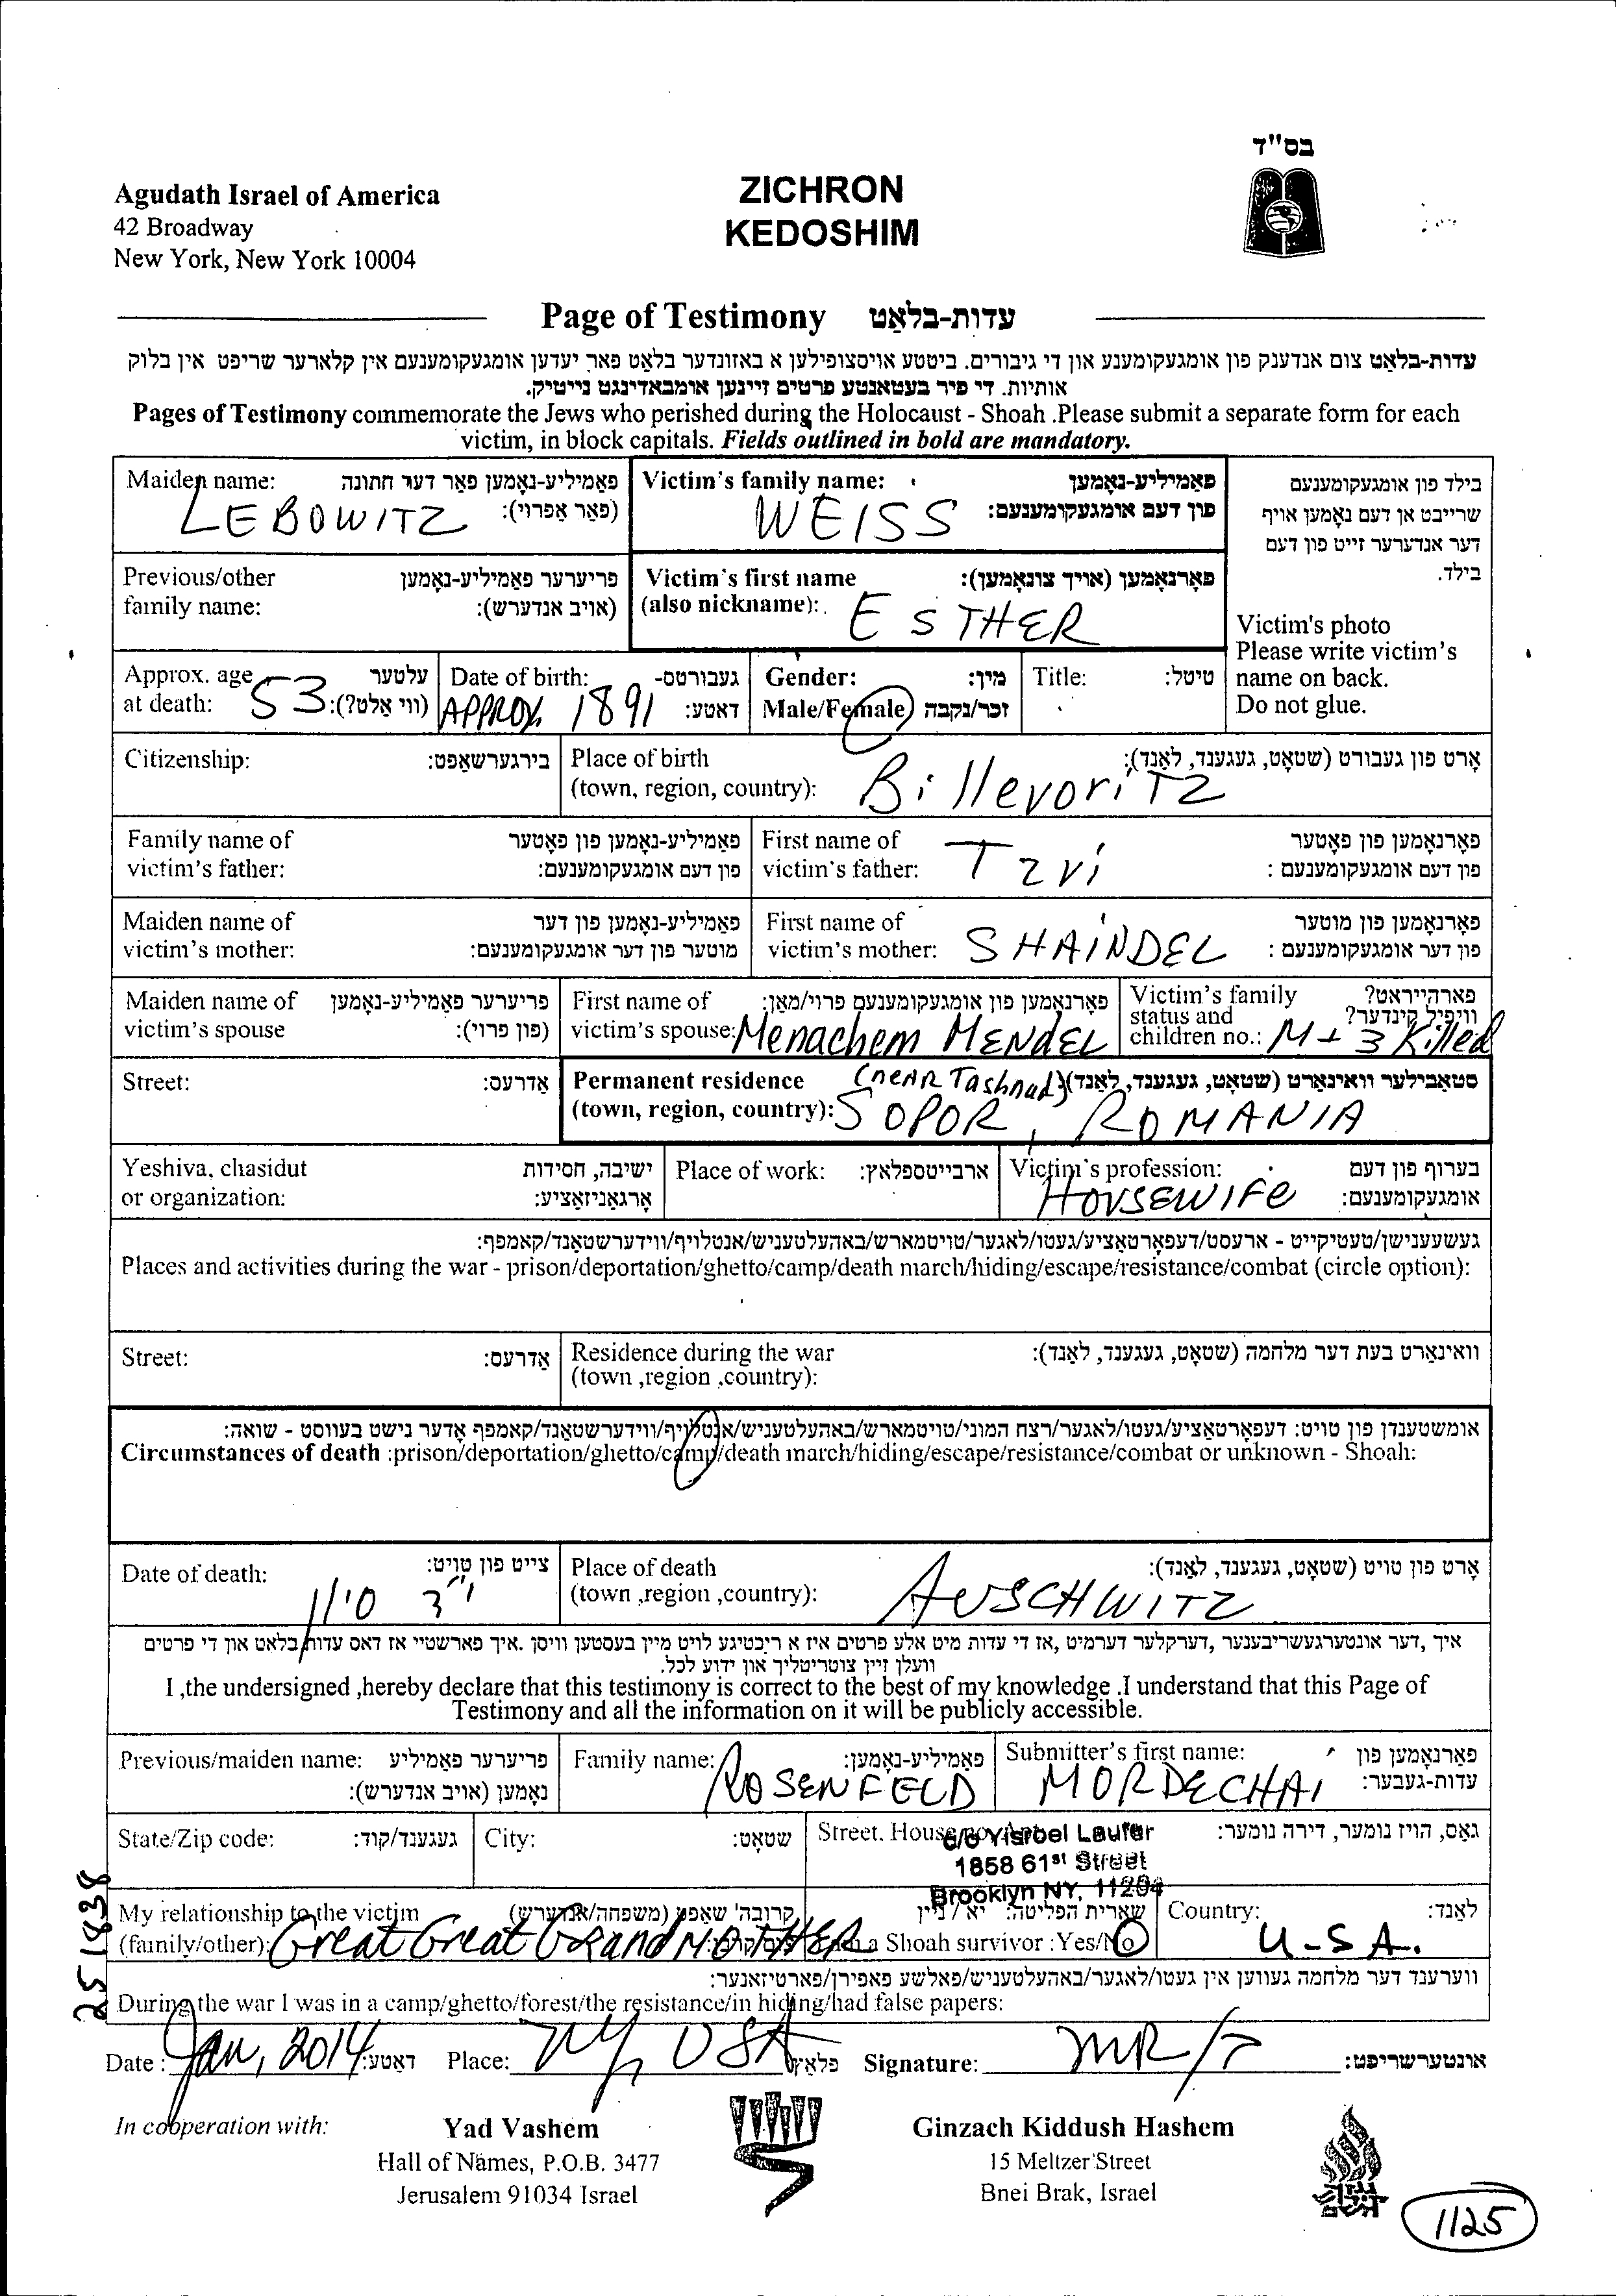 בס"ד
Agudath Israel of America
42 Broadway
New York, New York 10004
ZICHRON
KEDOSHIM
Page of Testimony עדות-בלאַט
עדות-בלאַט צום אנדענק פון אומגעקומענע און די גיבורים. ביטטע אויסצופילען א באזונדער בלאט פאר יעדען אומגעקומענעם אין קלארער שריפט אין בלוק
אותיות. די פיר בעטאנטע פרטים זיינען אומבאדינגט נייטיק.
Pages of Testimony commemorate the Jews who perished during the Holocaust - Shoah .Please submit a separate form for each
victim, in block capitals. Fields outlined in bold are mandatory.
Maiden name: פאַמיליע-נאָמען פאר דער חתונה
(פאַר אַפרוי):
LEBOWITZ
Victim's family name: פאַמיליע-נאָמען
פון דעם אומגעקומענעם:
WEISS
בילד פון אומגעקומענעם
שרייבט אן דעם נאָמען אויף
דער אנדערער זייט פון דעם
בילד.
Victim's photo
Please write victim's
name on back.
Do not glue.
Previous/other פריערער פאַמיליע-נאָמען
family name: (אויב אנדערש):
Victim's first name פאָרנאָמען (אויך צונאָמען):
(also nickname):
ESTHER
Approx. age עלטער
at death: (ווי אַלט?):
53
Date of birth: געבורטס-
דאַטע:
APPROX. 1891
Gender: מין:
Male/Female זכר/נקבה
Title: טיטל:
Citizenship: בירגערשאַפט:
Place of birth אָרט פון געבורט (שטאָט, געגענד, לאַנד):
(town, region, country):
Billevoritz
Family name of פאַמיליע-נאָמען פון פאָטער
victim's father: פון דעם אומגעקומענעם:
First name of פאָרנאָמען פון פאָטער
victim's father: פון דעם אומגעקומענעם :
Tzvi
Maiden name of פאַמיליע-נאָמען פון דער
victim's mother: מוטער פון דער אומגעקומענעם:
First name of פאָרנאָמען פון מוטער
victim's mother: פון דער אומגעקומענעם :
SHAINDEL
Maiden name of פריערער פאַמיליע-נאָמען
victim's spouse (פון פרוי):
First name of פאָרנאָמען פון אומגעקומענעם פרוי/מאַן:
victim's spouse: Menachem MENDEL
Victim's family פארהייראט?
status and וויפיל קינדער?
children no.: M + 3 Killed
Street: אַדרעס:
Permanent residence סטאַבילער וואינארט (שטאָט, געגענד, לאַנד):
(near Tashnad)
(town, region, country): SOPOR, ROMANIA
Yeshiva, chasidut ישיבה, חסידות
or organization: אָרגאַניזאַציע:
Place of work: ארבייטספלאץ:
Victim's profession: בערוף פון דעם
אומגעקומענעם:
HOUSEWIFE
געשעענישן/טעטיקייט - ארעסט/דעפּאָרטאַציע/געטו/לאגער/טויטמארש/באהעלטעניש/אנטלויף/ווידערשטאנד/קאמפף:
Places and activities during the war - prison/deportation/ghetto/camp/death march/hiding/escape/resistance/combat (circle option):
Street: אַדרעס:
Residence during the war וואינארט בעת דער מלחמה (שטאָט, געגענד, לאַנד):
(town ,region ,country):
אומשטענדן פון טויט: דעפּאָרטאַציע/געטו/לאגער/רצח המוני/טויטמארש/באהעלטעניש/אנטלויף/ווידערשטאַנד/קאמפף אָדער נישט בעווסט - שואה:
Circumstances of death :prison/deportation/ghetto/camp/death march/hiding/escape/resistance/combat or unknown - Shoah:
Date of death: צייט פון טויט:
י"ד סיון
Place of death אָרט פון טויט (שטאָט, געגענד, לאַנד):
(town ,region ,country):
AUSCHWITZ
איך ,דער אונטערגעשריבענער ,דערקלער דערמיט ,אז די עדות מיט אלע פרטים איז א ריכטיגע לויט מיין בעסטען וויסן .איך פארשטיי אז דאס עדות בלאט און די פרטים
וועלן זיין צוטריטליך און ידוע לכל.
I ,the undersigned ,hereby declare that this testimony is correct to the best of my knowledge .I understand that this Page of
Testimony and all the information on it will be publicly accessible.
Previous/maiden name: פריערער פאַמיליע
נאָמען (אויב אנדערש):
Family name: פאַמיליע-נאָמען:
ROSENFELD
Submitter's first name: פאָרנאָמען פון
עדות-געבער:
MORDECHAI
State/Zip code: געגענד/קוד:
City: שטאָט:
Street, House גאַס, הויז נומער, דירה נומער:
c/o Yisroel Laufer
1858 61st Street
Brooklyn NY, 11204
My relationship to the victim קרובה' שאַפט (משפחה/אנדערש)
(family/other): Great Great Grand MOTHER
שארית הפליטה: יא / ניין
a Shoah survivor :Yes/No
Country: לאַנד:
U.S.A.
ווערענד דער מלחמה געווען אין געטו/לאגער/באהעלטעניש/פאלשע פאפירן/פארטיזאנער:
During the war I was in a camp/ghetto/forest/the resistance/in hiding/had false papers:
251838
Date : Jan, 2014 דאַטע: Place: NY, USA פלאַץ Signature: MR/7 אונטערשריפט:
In cooperation with:
Yad Vashem
Hall of Names, P.O.B. 3477
Jerusalem 91034 Israel
Ginzach Kiddush Hashem
15 Meltzer Street
Bnei Brak, Israel
1125